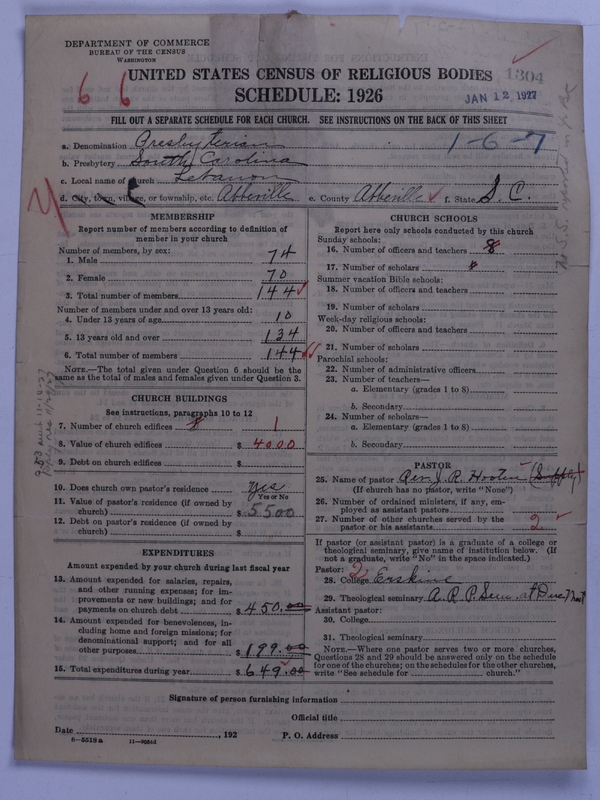 DEPARTMENT OF COMMERCE
BUREAU OF THE CENSUS
WASHINGTON
6 6
UNITED STATES CENSUS OF RELIGIOUS BODIES
1304
SCHEDULE: 1926
JAN 12 1927
FILL OUT A SEPARATE SCHEDULE FOR EACH CHURCH. SEE INSTRUCTIONS ON THE BACK OF THIS SHEET
a. Denomination Presbyterian
1-6-7
b. Presbytery South Carolina
c. Local name of church Lebanon
d. City, town, village, or township, etc. Abbeville e. County Abbeville f. State S. C.
MEMBERSHIP
Report number of members according to definition of
member in your church
Number of members, by sex:
1. Male 74
2. Female 70
3. Total number of members 144
Number of members under and over 13 years old:
4. Under 13 years of age 10
5. 13 years old and over 134
6. Total number of members 144
NOTE.—The total given under Question 6 should be the
same as the total of males and females given under Question 3.
CHURCH BUILDINGS
See instructions, paragraphs 10 to 12
7. Number of church edifices 1
8. Value of church edifices $ 4000
9. Debt on church edifices $
10. Does church own pastor's residence yes
Yes or No
11. Value of pastor's residence (if owned by
church) $ 5500
12. Debt on pastor's residence (if owned by
church) $
EXPENDITURES
Amount expended by your church during last fiscal year
13. Amount expended for salaries, repairs,
and other running expenses; for im-
provements or new buildings; and for
payments on church debt $ 450.00
14. Amount expended for benevolences, in-
cluding home and foreign missions; for
denominational support; and for all
other purposes $ 199.00
15. Total expenditures during year $ 649.00
CHURCH SCHOOLS
Report here only schools conducted by this church
Sunday schools:
16. Number of officers and teachers 8
17. Number of scholars
Summer vacation Bible schools:
18. Number of officers and teachers
19. Number of scholars
Week-day religious schools:
20. Number of officers and teachers
21. Number of scholars
Parochial schools:
22. Number of administrative officers
23. Number of teachers—
a. Elementary (grades 1 to 8)
b. Secondary
24. Number of scholars—
a. Elementary (grades 1 to 8)
b. Secondary
PASTOR
25. Name of pastor Rev. J. R. Hooten (Supply)
(If church has no pastor, write "None")
26. Number of ordained ministers, if any, em-
ployed as assistant pastors
27. Number of other churches served by the
pastor or his assistants 2
If pastor (or assistant pastor) is a graduate of a college or
theological seminary, give name of institution below. (If
not a graduate, write "No" in the space indicated.)
Pastor: 2
28. College Erskine
29. Theological seminary A. R. P. Sem. at Due West
Assistant pastor:
30. College
31. Theological seminary
NOTE.—Where one pastor serves two or more churches,
Questions 28 and 29 should be answered only on the schedule
for one of the churches; on the schedules for the other churches,
write "See schedule for church."
Signature of person furnishing information
Official title
Date , 192 P. O. Address
8—5518a 11—9054d